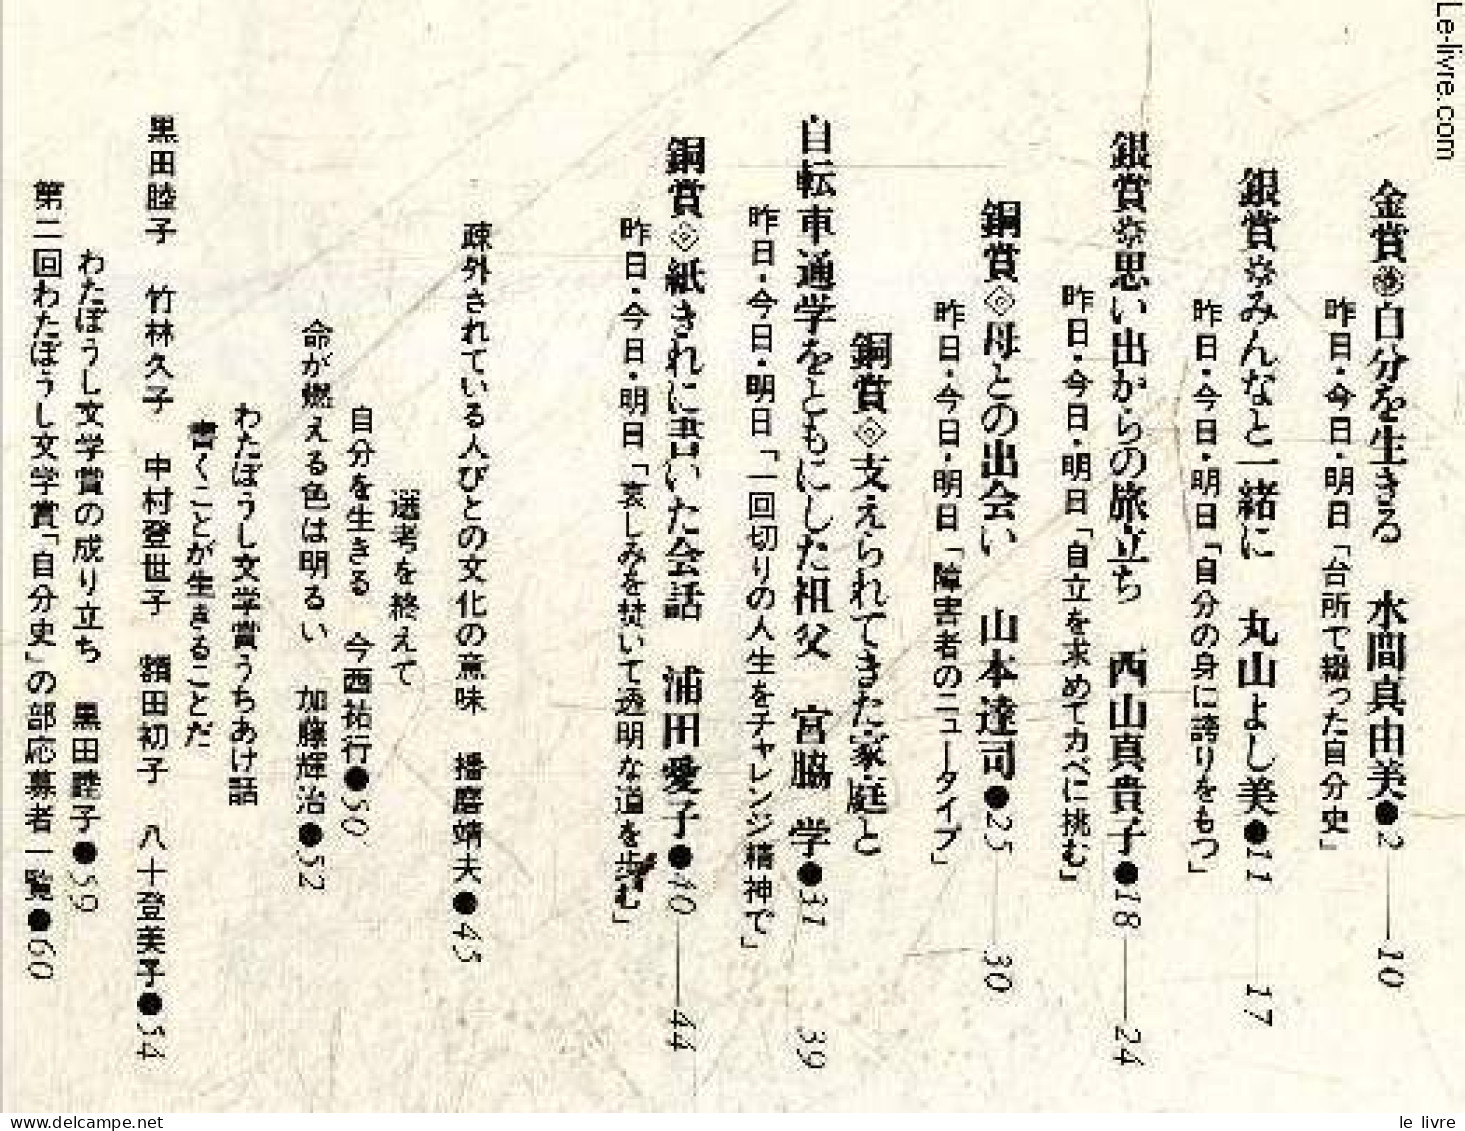 金賞㊕自分を生きる 水間真由美●2——10
昨日・今日・明日「台所で綴った自分史」
銀賞※みんなと一緒に 丸山よし美●11——17
昨日・今日・明日「自分の身に誇りをもつ」
銀賞※思い出からの旅立ち 西山真貴子●18——24
昨日・今日・明日「自立を求めてカベに挑む」
銅賞◈母との出会い 山本達司●25——30
昨日・今日・明日「障害者のニュータイプ」
銅賞◈支えられてきた家庭と
自転車通学をともにした祖父 宮脇 学●31 39
昨日・今日・明日「一回切りの人生をチャレンジ精神で」
銅賞◈紙きれに書いた会話 浦田愛子●40——44
昨日・今日・明日「哀しみを焚いて透明な道を歩む」
疎外されている人びとの文化の意味 播磨靖夫●45
選考を終えて
自分を生きる 今西祐行●50
命が燃える色は明るい 加藤輝治●52
わたぼうし文学賞うちあけ話
書くことが生きることだ
黒田睦子 竹林久子 中村登世子 額田初子 八十登美子●54
わたぼうし文学賞の成り立ち 黒田睦子●59
第二回わたぼうし文学賞「自分史」の部応募者一覧●60
Le-livre.com
le livre